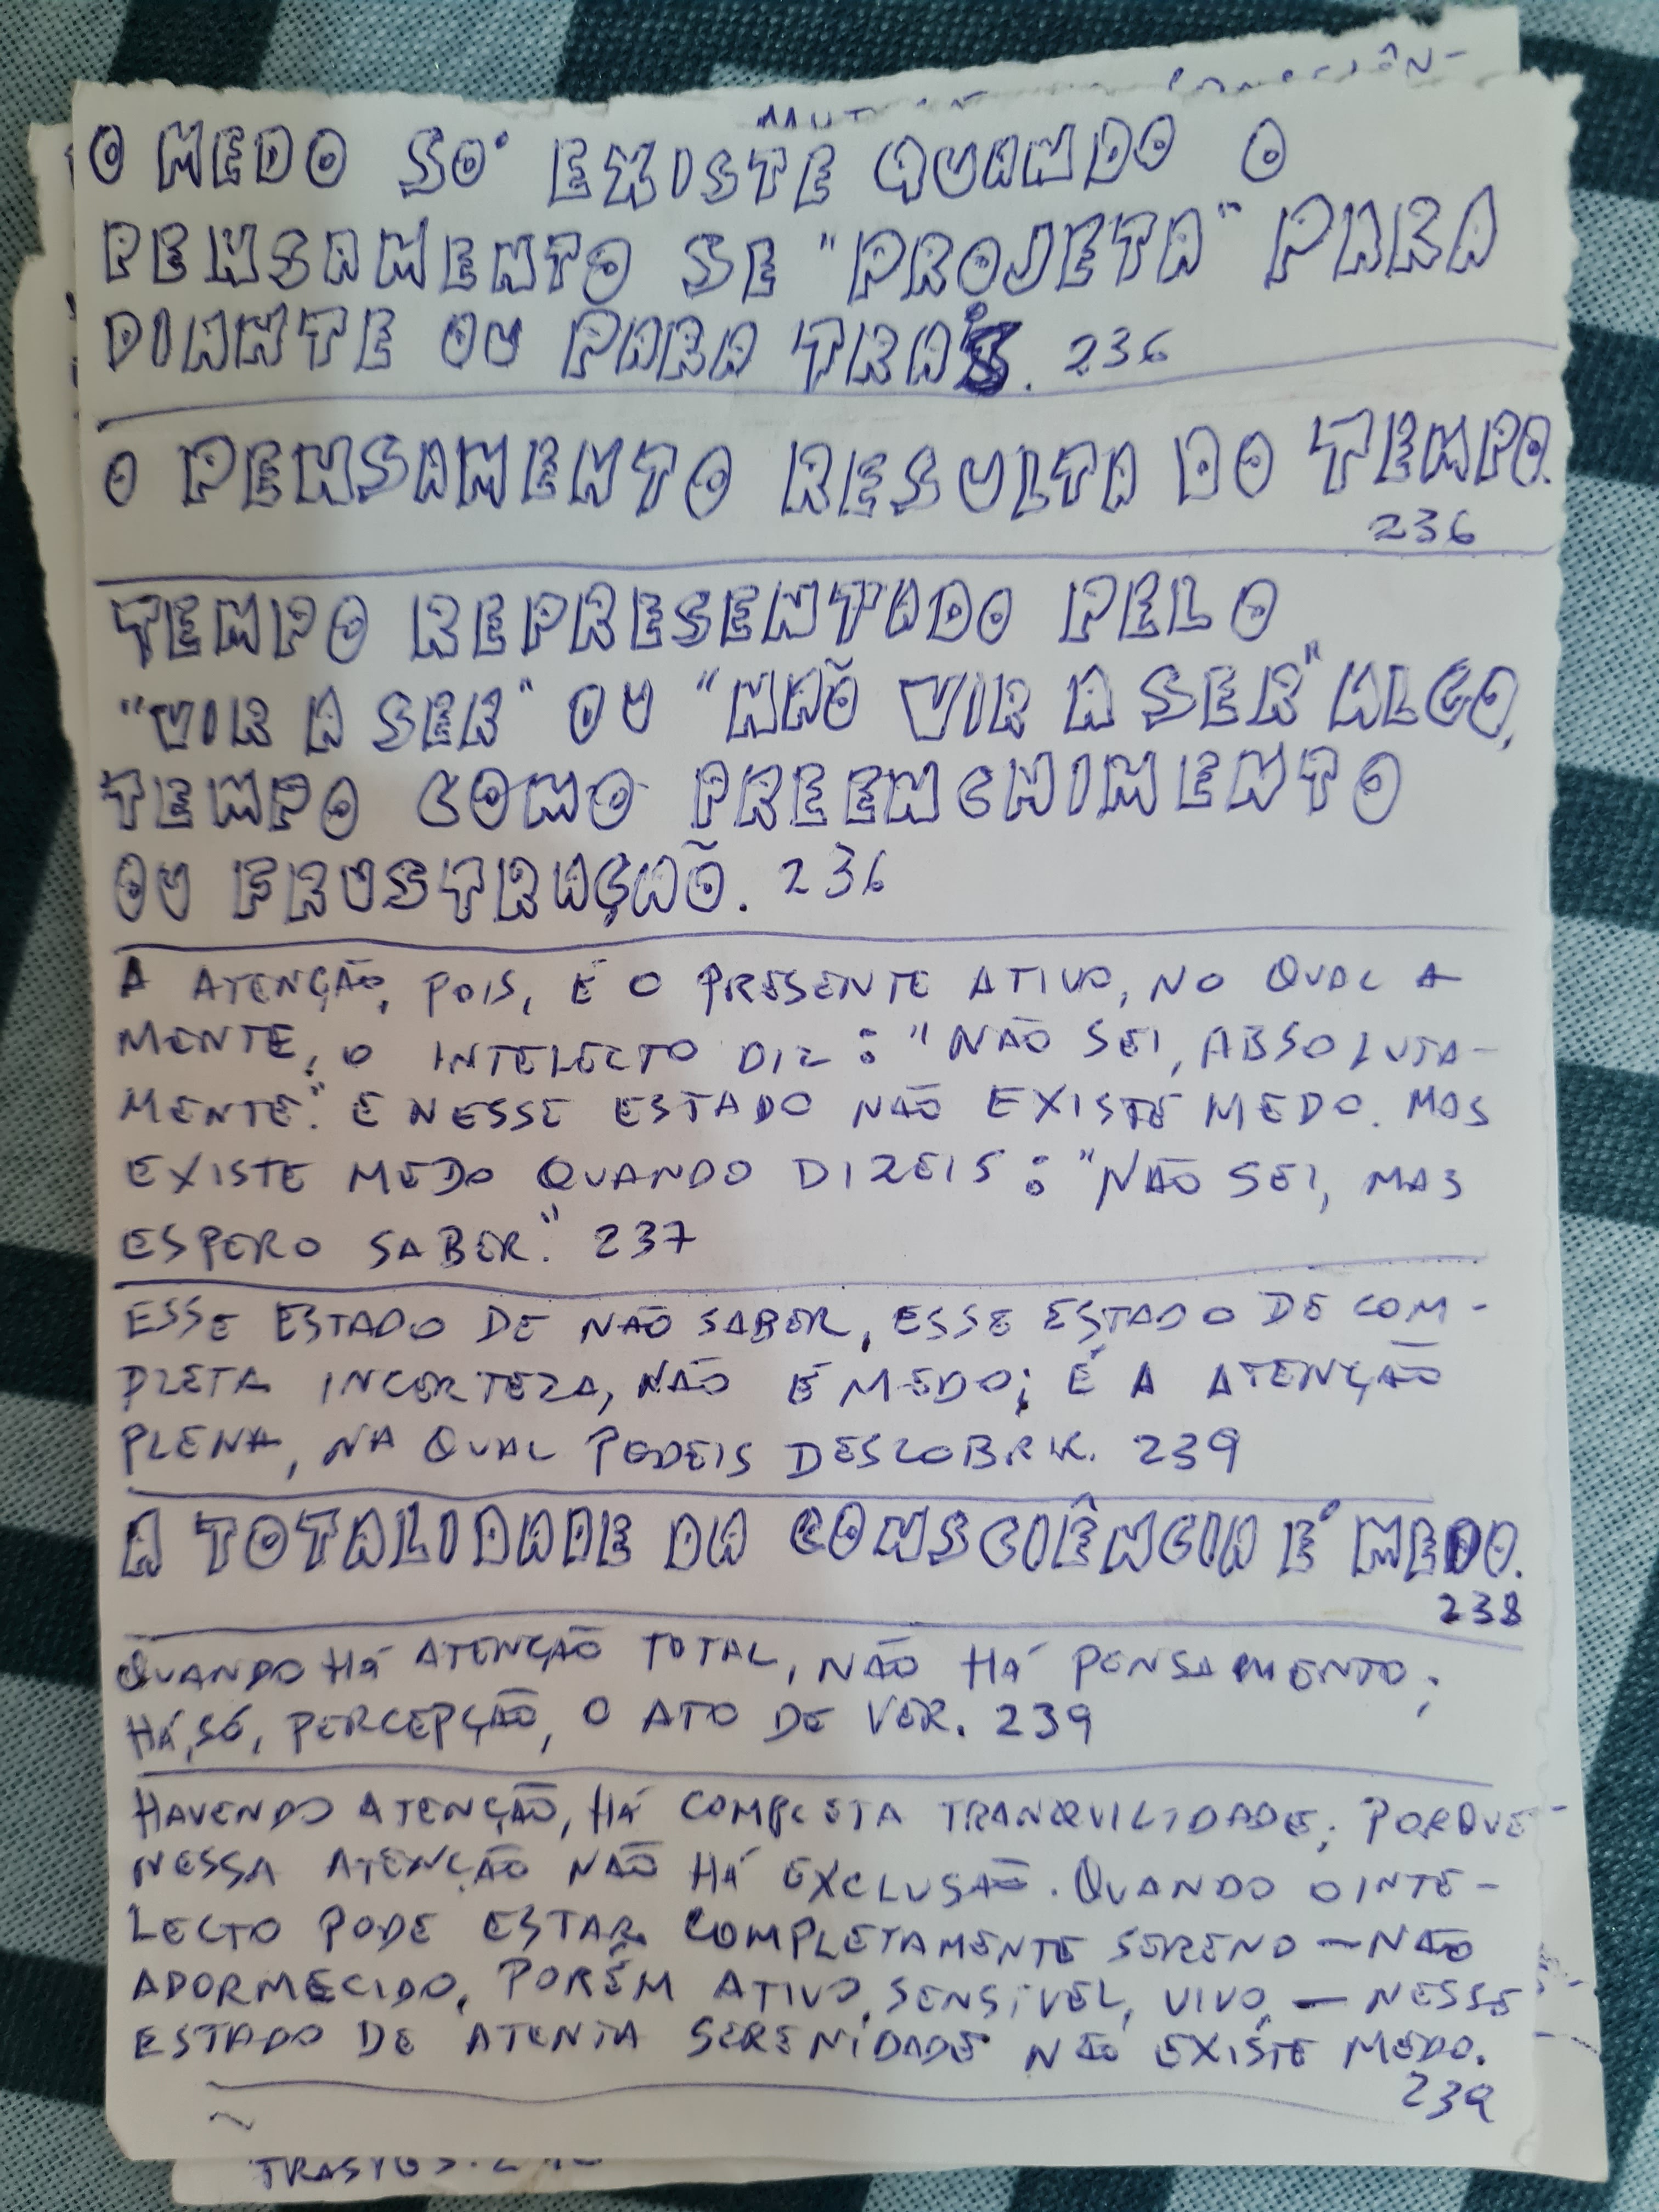 O MEDO SÓ EXISTE QUANDO O
PENSAMENTO SE "PROJETA" PARA
DIANTE OU PARA TRÁS. 236
O PENSAMENTO RESULTA DO TEMPO.
236
TEMPO REPRESENTADO PELO
"VIR A SER" OU "NÃO VIR A SER" ALGO,
TEMPO COMO PREENCHIMENTO
OU FRUSTRAÇÃO. 236
A ATENÇÃO, POIS, É O PRESENTE ATIVO, NO QUAL A
MENTE, O INTELECTO DIZ: "NÃO SEI, ABSOLUTA-
MENTE." E NESSE ESTADO NÃO EXISTE MEDO. MAS
EXISTE MEDO QUANDO DIZEIS: "NÃO SEI, MAS
ESPERO SABER." 237
ESSE ESTADO DE NÃO SABER, ESSE ESTADO DE COM-
PLETA INCERTEZA, NÃO É MEDO; É A ATENÇÃO
PLENA, NA QUAL PODEIS DESCOBRIR. 239
A TOTALIDADE DA CONSCIÊNCIA É MEDO.
238
QUANDO HÁ ATENÇÃO TOTAL, NÃO HÁ PENSAMENTO;
HÁ, SÓ, PERCEPÇÃO, O ATO DE VER. 239
HAVENDO ATENÇÃO, HÁ COMPLETA TRANQUILIDADE; PORQUE
NESSA ATENÇÃO NÃO HÁ EXCLUSÃO. QUANDO O INTE-
LECTO PODE ESTAR COMPLETAMENTE SERENO — NÃO
ADORMECIDO, PORÉM ATIVO, SENSÍVEL, VIVO, — NESSE
ESTADO DE ATENTA SERENIDADE NÃO EXISTE MEDO.
239